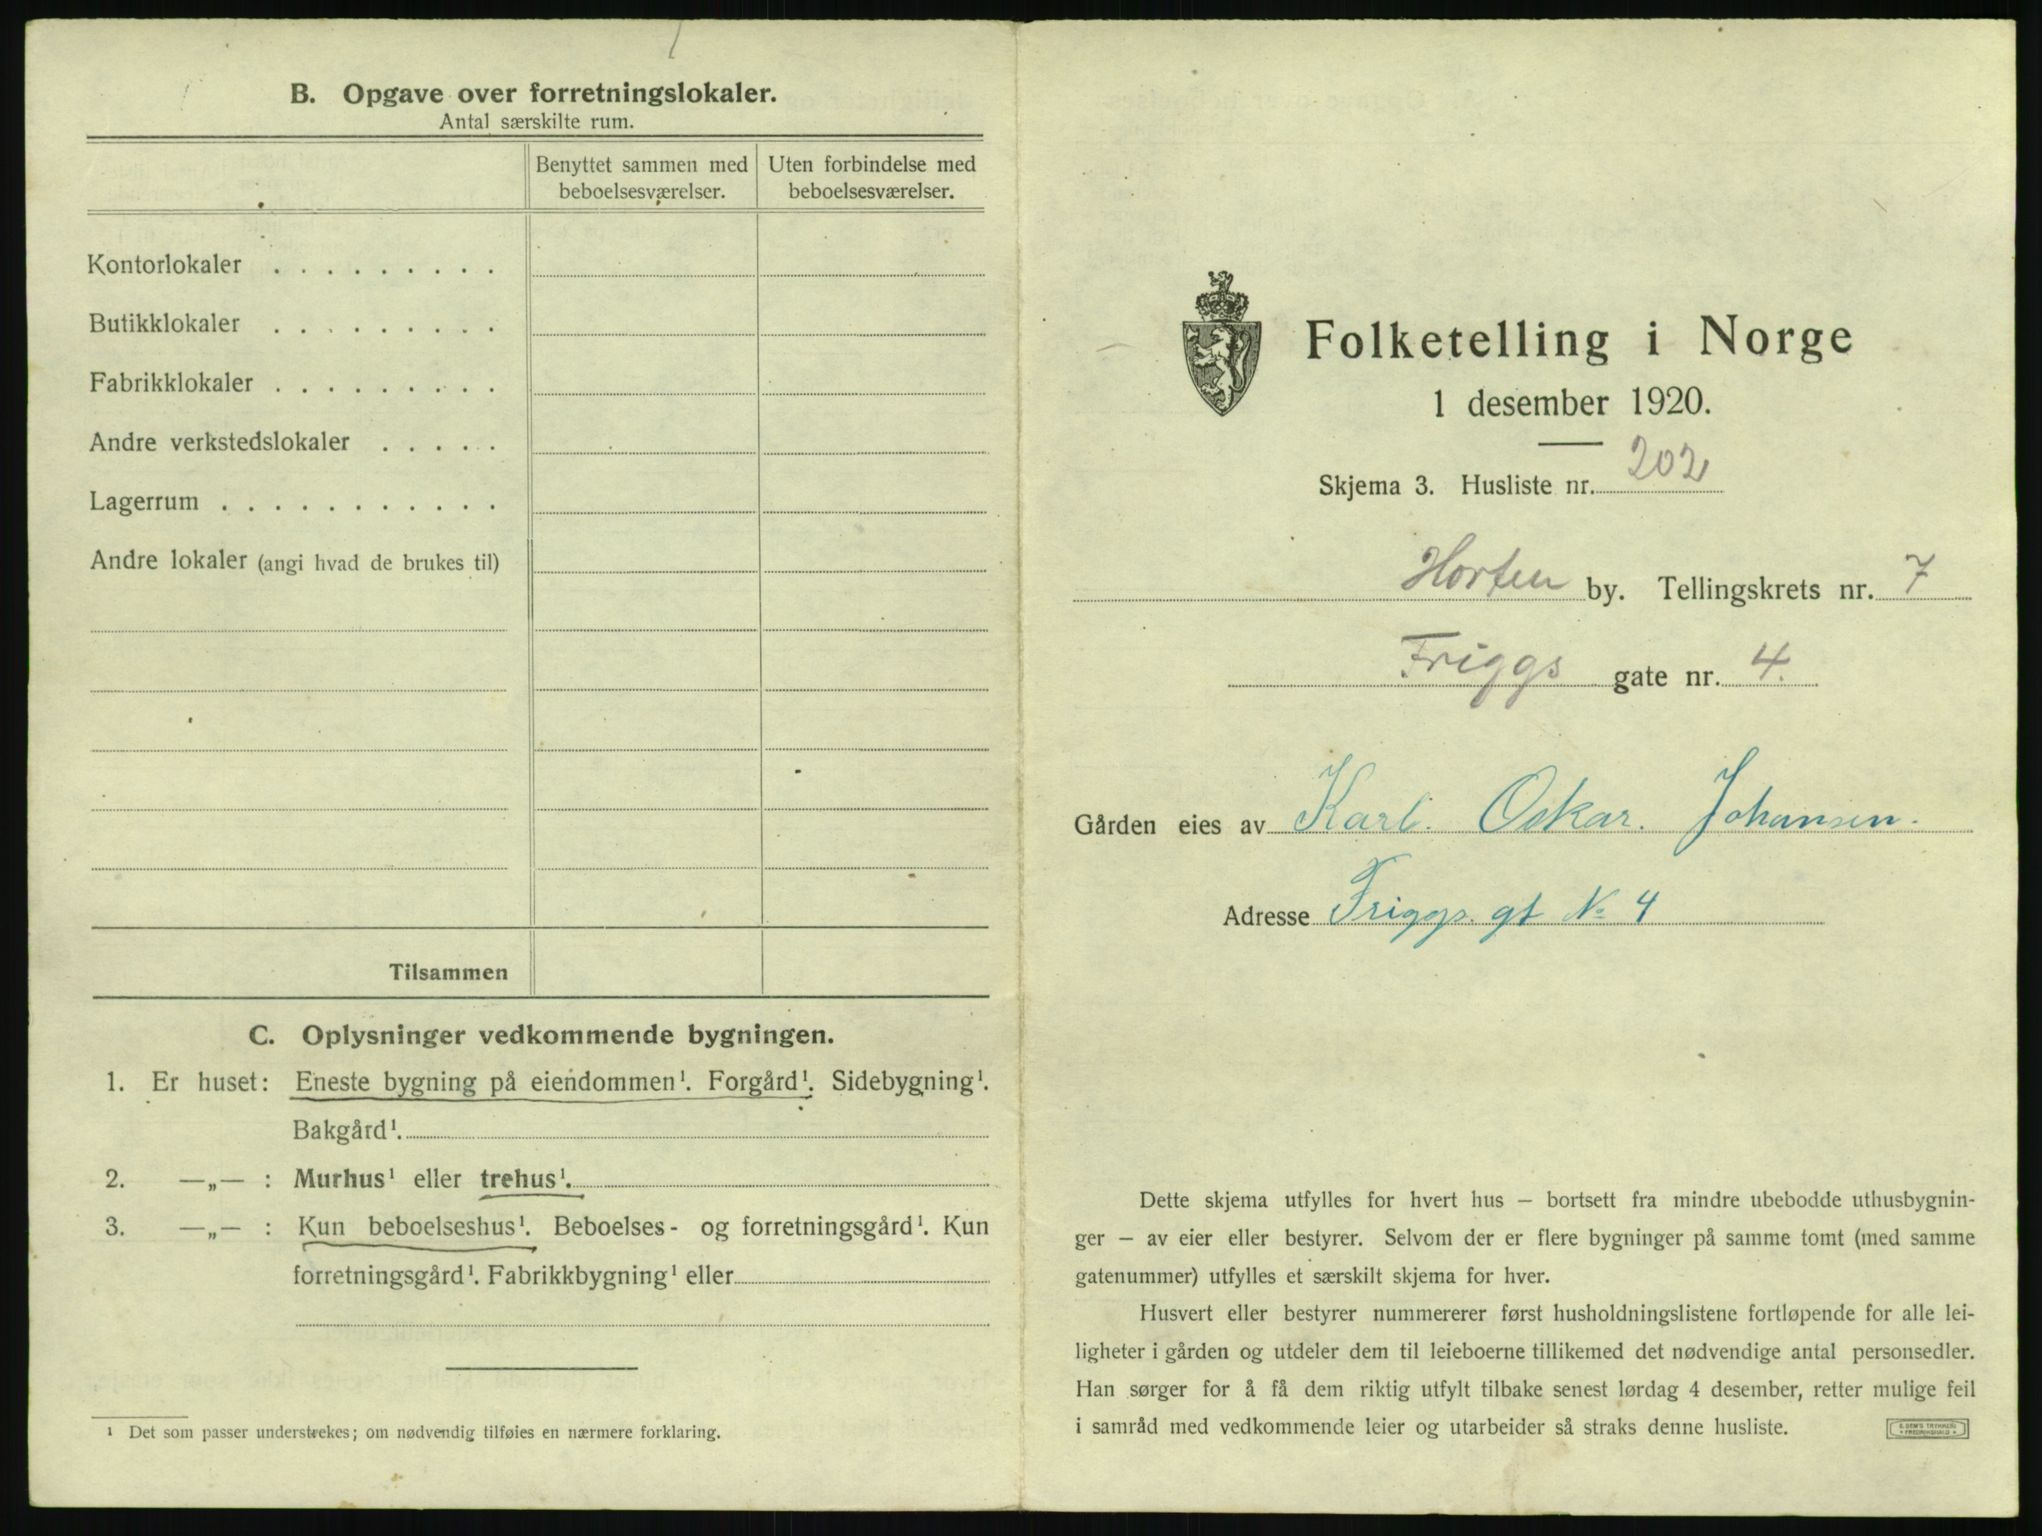 B. Opgave over forretningslokaler.
Antal særskilte rum.
Benyttet sammen med beboelsesværelser.
Uten forbindelse med beboelsesværelser.
Kontorlokaler . . . . . . . . .
Butikklokaler . . . . . . . . .
Fabrikklokaler . . . . . . . . .
Andre verkstedslokaler . . . . .
Lagerrum . . . . . . . . . . .
Andre lokaler (angi hvad de brukes til)
Tilsammen
C. Oplysninger vedkommende bygningen.
1. Er huset: Eneste bygning på eiendommen¹. Forgård¹. Sidebygning¹.
Bakgård¹.
2. —„— : Murhus¹ eller trehus¹.
3. —„— : Kun beboelseshus¹. Beboelses- og forretningsgård¹. Kun
forretningsgård¹. Fabrikkbygning¹ eller
¹ Det som passer understrekes; om nødvendig tilføies en nærmere forklaring.
Folketelling i Norge
1 desember 1920.
Skjema 3. Husliste nr. 202
Horten by. Tellingskrets nr. 7
Friggs gate nr. 4.
Gården eies av Karl. Oskar. Johansen.
Adresse Friggs. gt No 4
Dette skjema utfylles for hvert hus — bortsett fra mindre ubebodde uthusbygnin-
ger — av eier eller bestyrer. Selvom der er flere bygninger på samme tomt (med samme
gatenummer) utfylles et særskilt skjema for hver.
Husvert eller bestyrer nummererer først husholdningslistene fortløpende for alle lei-
ligheter i gården og utdeler dem til leieboerne tillikemed det nødvendige antal personsedler.
Han sørger for å få dem riktig utfylt tilbake senest lørdag 4 desember, retter mulige feil
i samråd med vedkommende leier og utarbeider så straks denne husliste.